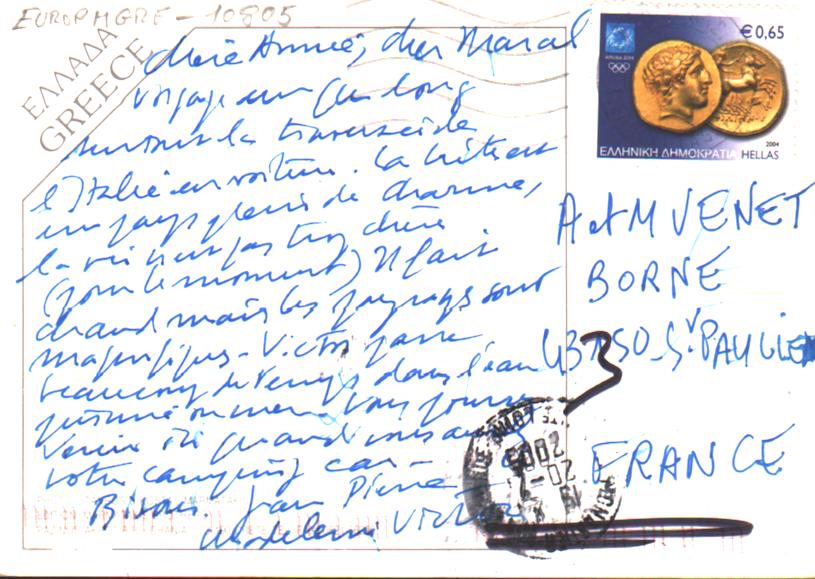 EUROPMGRE - 10805
ΕΛΛΑΔΑ
GREECE
chère Annie, cher Marcel
voyage un peu long
surtout la traversée de
l'Italie en voiture. La Grèce est
un pays plein de charme,
la vie n'est pas trop chère
(pour le moment) Il fait
chaud mais les paysages sont
magnifiques - Victor passe
beaucoup de temps dans l'eau
vous pouvez
venir ici quand vous
votre camping car
Bisous. Jean Pierre
Madeleine Victor
€0,65
ATHENS 2004
ΕΛΛΗΝΙΚΗ ΔΗΜΟΚΡΑΤΙΑ HELLAS
2004
A et M VENET
BORNE
43350 St PAULIEN
FRANCE
3